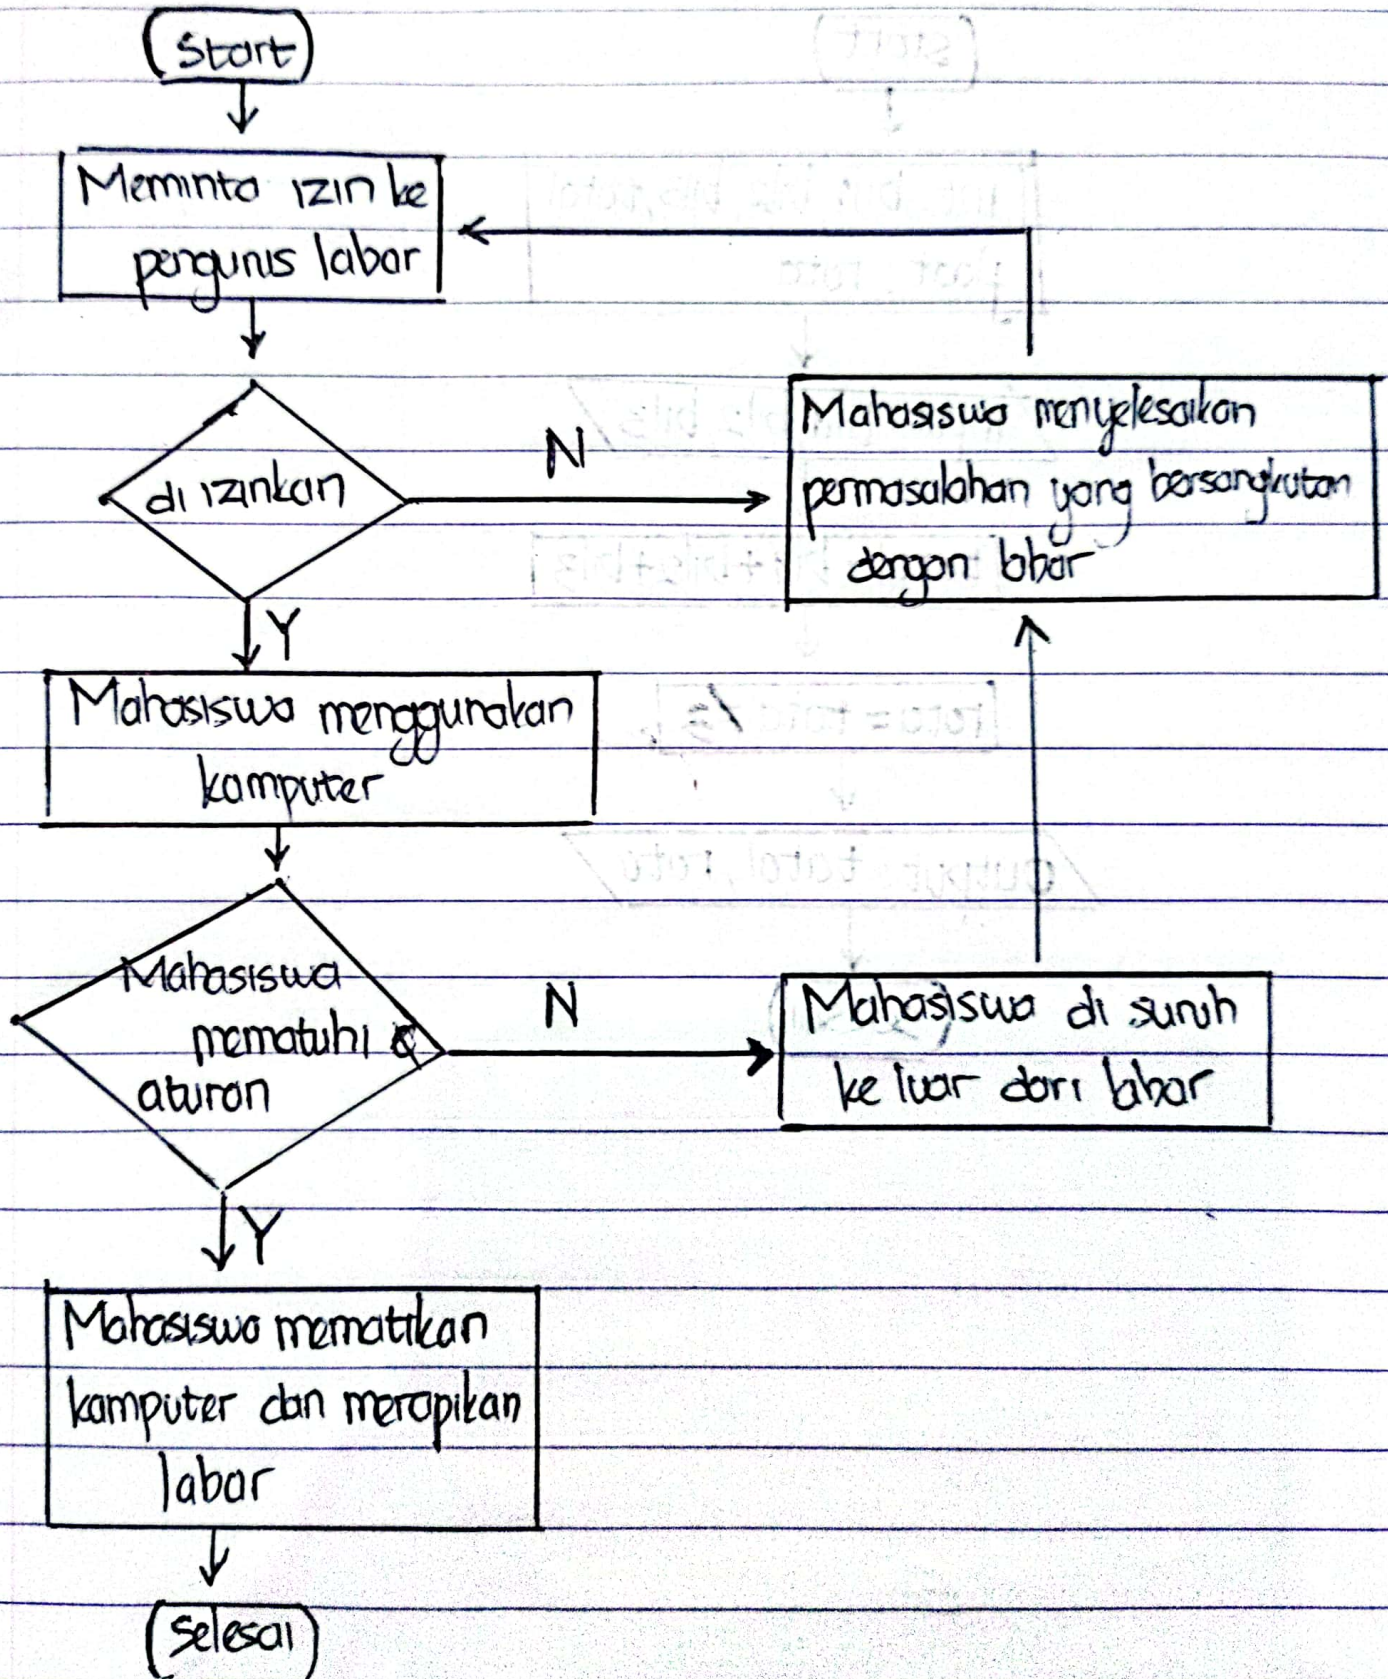 Start
Meminta izin ke
pengurus labor
di izinkan
N
Mahasiswa menyelesaikan
permasalahan yang bersangkutan
dengan labor
Y
Mahasiswa menggunakan
komputer
Mahasiswa
mematuhi
aturan
N
Mahasiswa di suruh
ke luar dari labor
Y
Mahasiswa mematikan
komputer dan merapikan
labor
Selesai